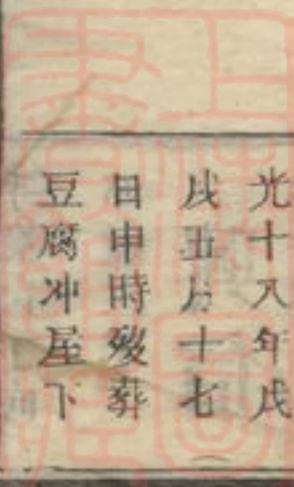 光十八年戊
戌五月十七
日申時殁葬
豆腐冲屋下